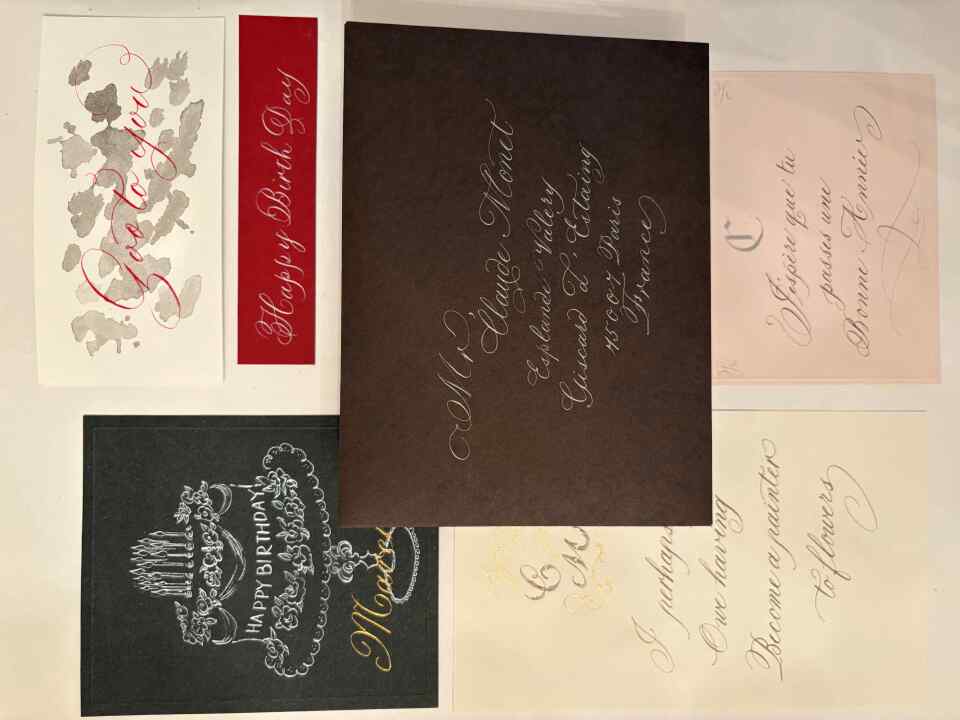 Goo to you
Happy Birth Day
Mr. Claude Monet
Esplande Valery
Giscard d'Estaing
75007 Paris
France
C
J'éspère que tu
passes une
Bonne Année
HAPPY BIRTHDAY!
C
M
I perhaps
Owe having
Become a painter
to flowers